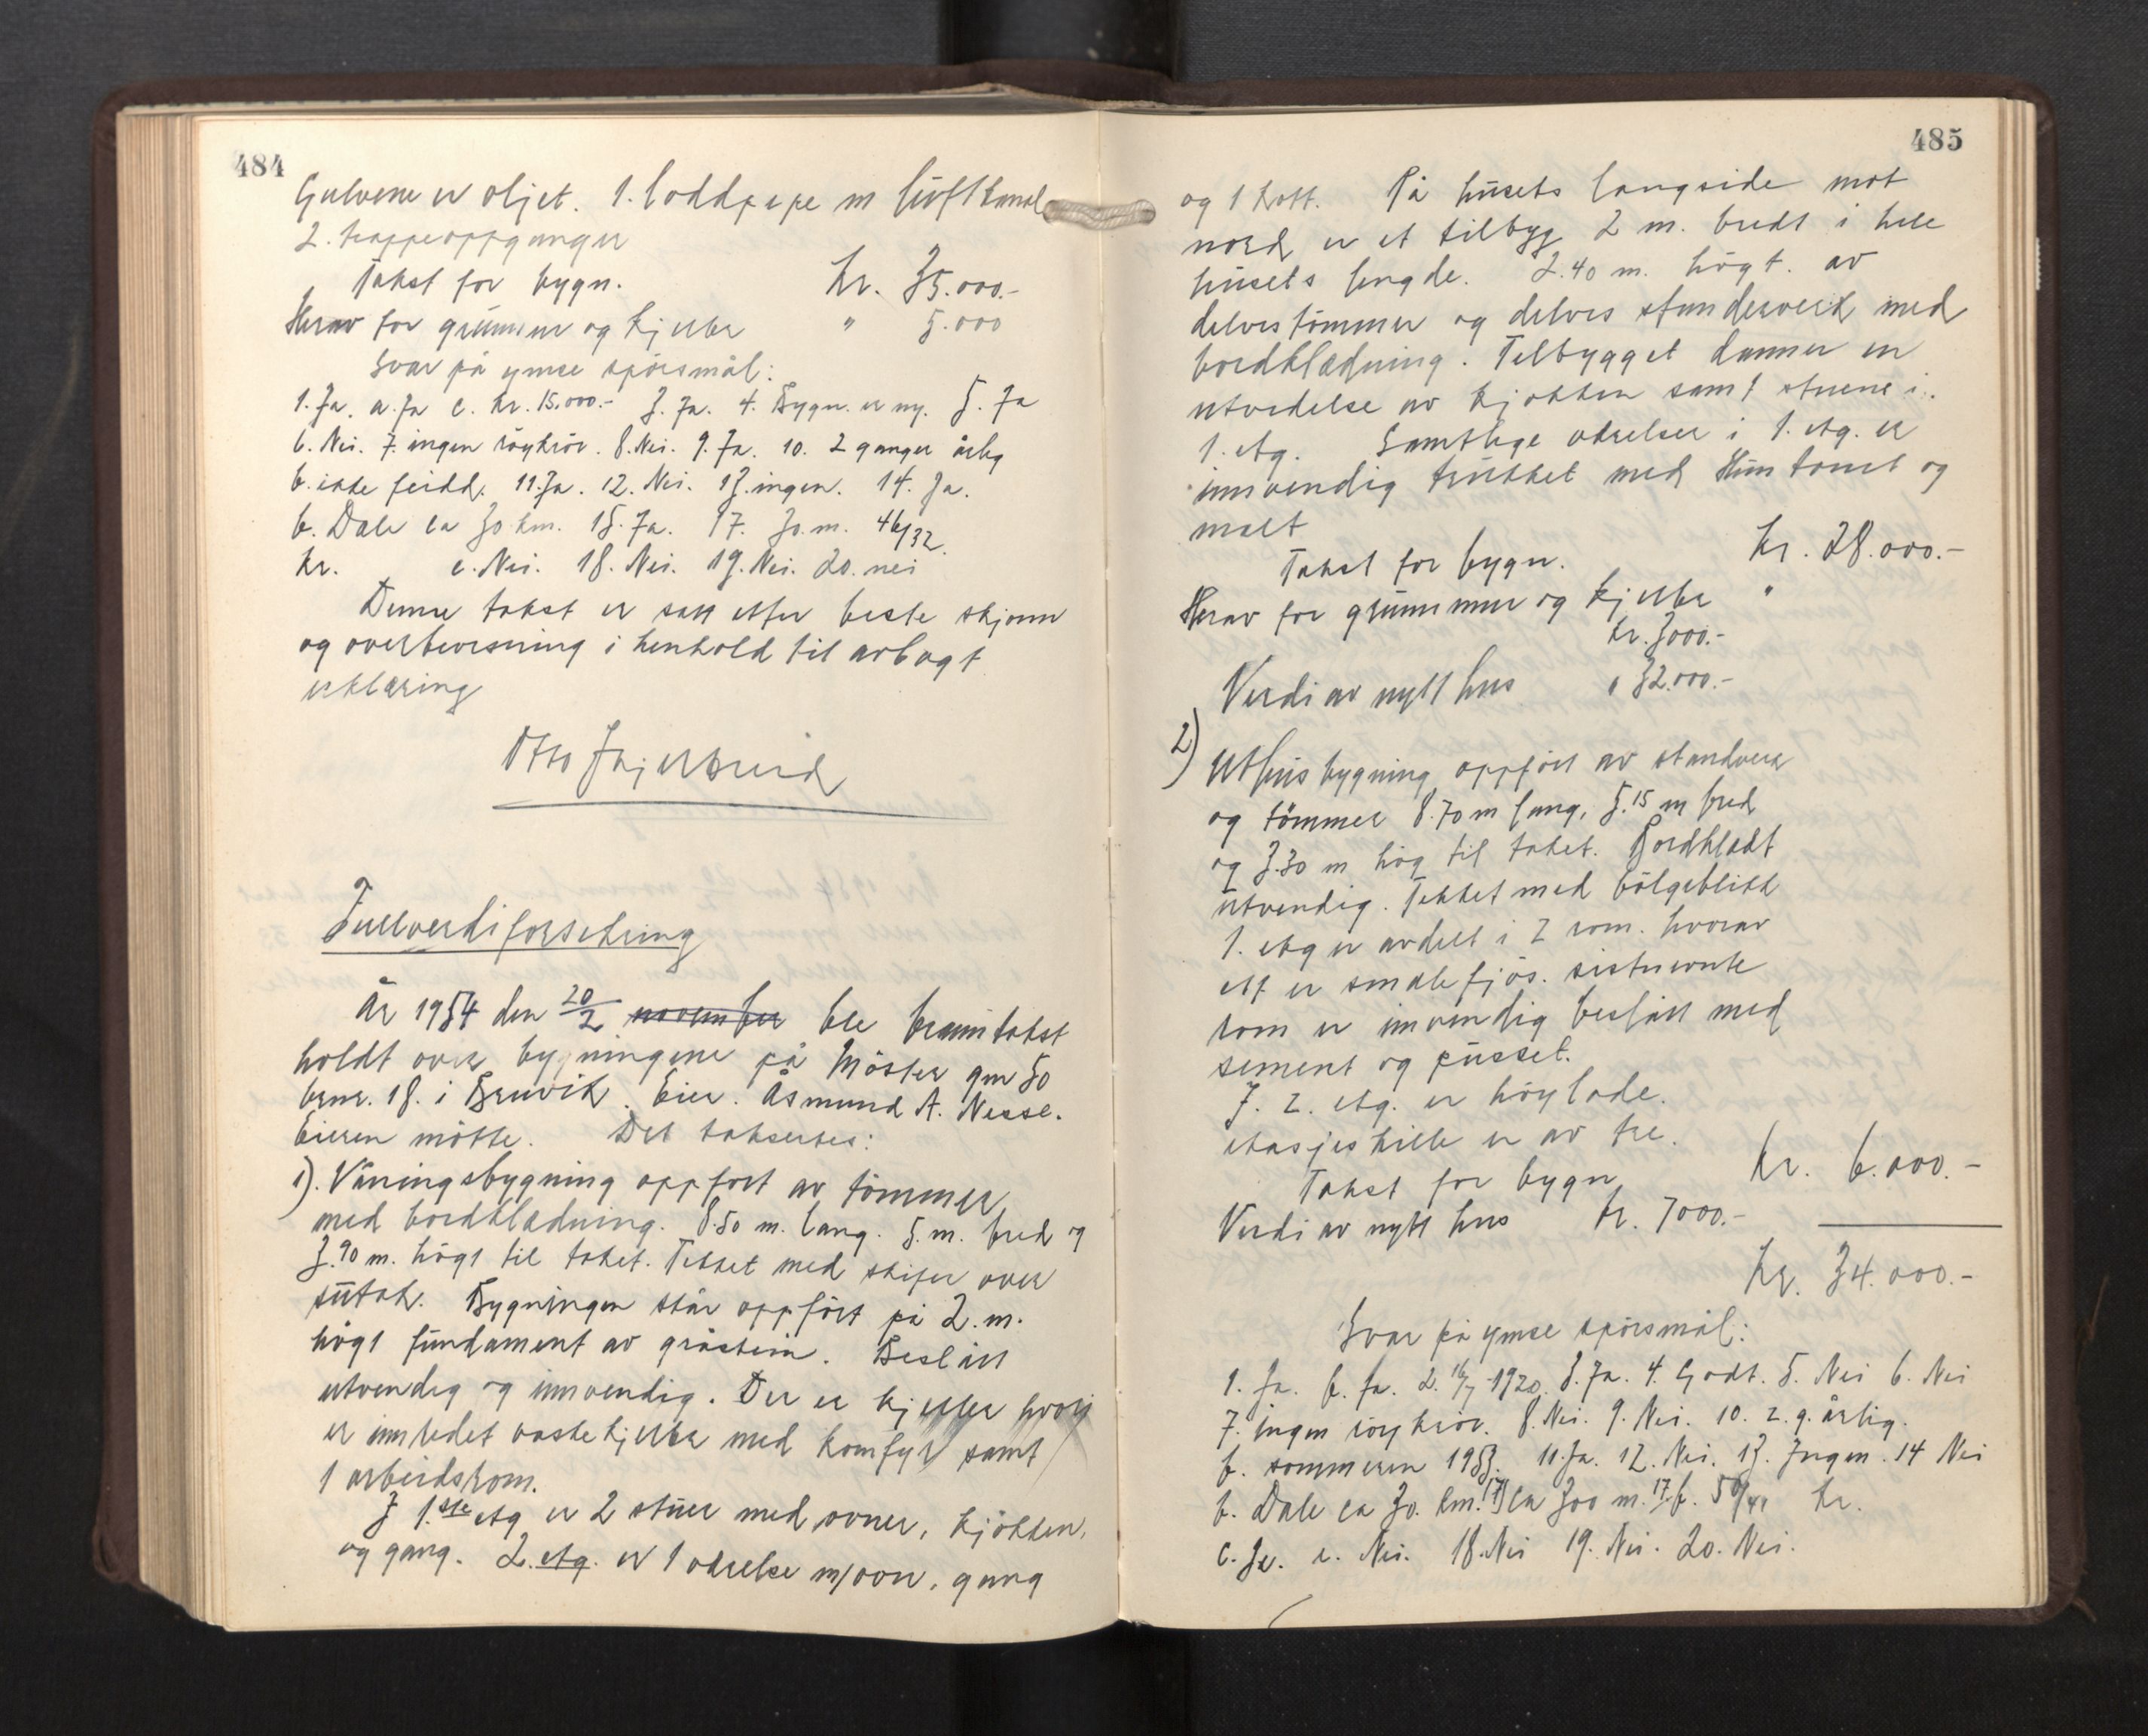 484
Gulvene er oljet. 1. loddpipe m luftkanal
2. trappeoppganger
Takst for bygn. kr. 35.000.-
Herav for grunnmur og kjeller " 5.000
Svar på ymse spörsmål:
1. Ja. a. Ja c. kr. 15.000.- 3. Ja. 4. Bygn. er ny. 5. Ja
6. Nei. 7. ingen röykrör. 8. Nei. 9. Ja. 10. 2 ganger årlig
b. ikke feidd. 11. Ja. 12. Nei. 13. ingen. 14. Ja.
b. Dale ca 30 km. 15. Ja. 17. 30. m. 46/32.
kr. e. Nei. 18. Nei. 19. Nei. 20. nei
Denne takst er satt etter beste skjönn
og overbevisning i henhold til avlagt
erklæring
Otto
Fullverdiforsikring
År 1954 den 20/2 november ble branntakst
holdt over bygningene på Möster gnr 50
brnr. 18. i Bruvik. Eier. Åsmund A. Nesse.
Eieren mötte. Det takseres:
1). Våningsbygning oppfört av tömmer
med bordklædning. 8.50 m. lang. 5. m. bred og
3.90 m. högt til taket. Tekket med skifer over
sutak. Bygningen står oppfört på 2. m.
högt fundament av gråstein. Beslått
utvendig og innvendig. Der er kjeller hvori
er innredet vaskekjeller med komfyr samt
1 arbeidsrom.
I 1.ste etg er 2 stuer med ovner, kjökken,
og gang. 2. etg. er 1 værelse m/ovn, gang
485
og 1 kott. På husets langside mot
nord er et tilbygg 2 m. bredt i hele
husets lengde. 2.40 m. högt. av
delvis tömmer og delvis stenderverk med
bordklædning. Tilbygget danner en
utvidelse av kjökken samt stuene i
1. etg. Samtlige værelser i 1. etg. er
innvendig trukket med Huntonit og
malt
Takst for bygn. kr. 28.000.-
Herav for grunnmur og kjeller "
kr. 3000.-
Verdi av nytt hus " 32.000.-
2)
Uthusbygning oppfört av standverk
og tömmer 8.70 m lang, 5.15 m bred
og 3.30 m hög til taket. Bordklædt
utvendig. Tekket med bölgeblikk
1. etg er avdelt i 2 rom. hvorav
ett er smalefjös. sistnevnte
rom er innvendig beslått med
sement og pusset.
I. 2. etg. er höylade.
etasjeskille er av tre.
Takst for bygn kr. 6.000.-
Verdi av nytt hus kr. 7000.-
kr. 34.000.-
Svar på ymse spörsmål:
1. Ja. b. Ja. 2. 16/7-1920. 3. Ja. 4. Godt. 5. Nei 6. Nei
7. ingen röykrör. 8. Nei. 9. Nei. 10. 2. g. årlig.
b. sommeren 1953. 11. Ja. 12. Nei. 13. Ingen. 14 Nei
b. Dale ca 30. km. ca 300 m. 17. b. kr.
c. Ja. e. Nei. 18. Nei 19. Nei. 20. Nei.